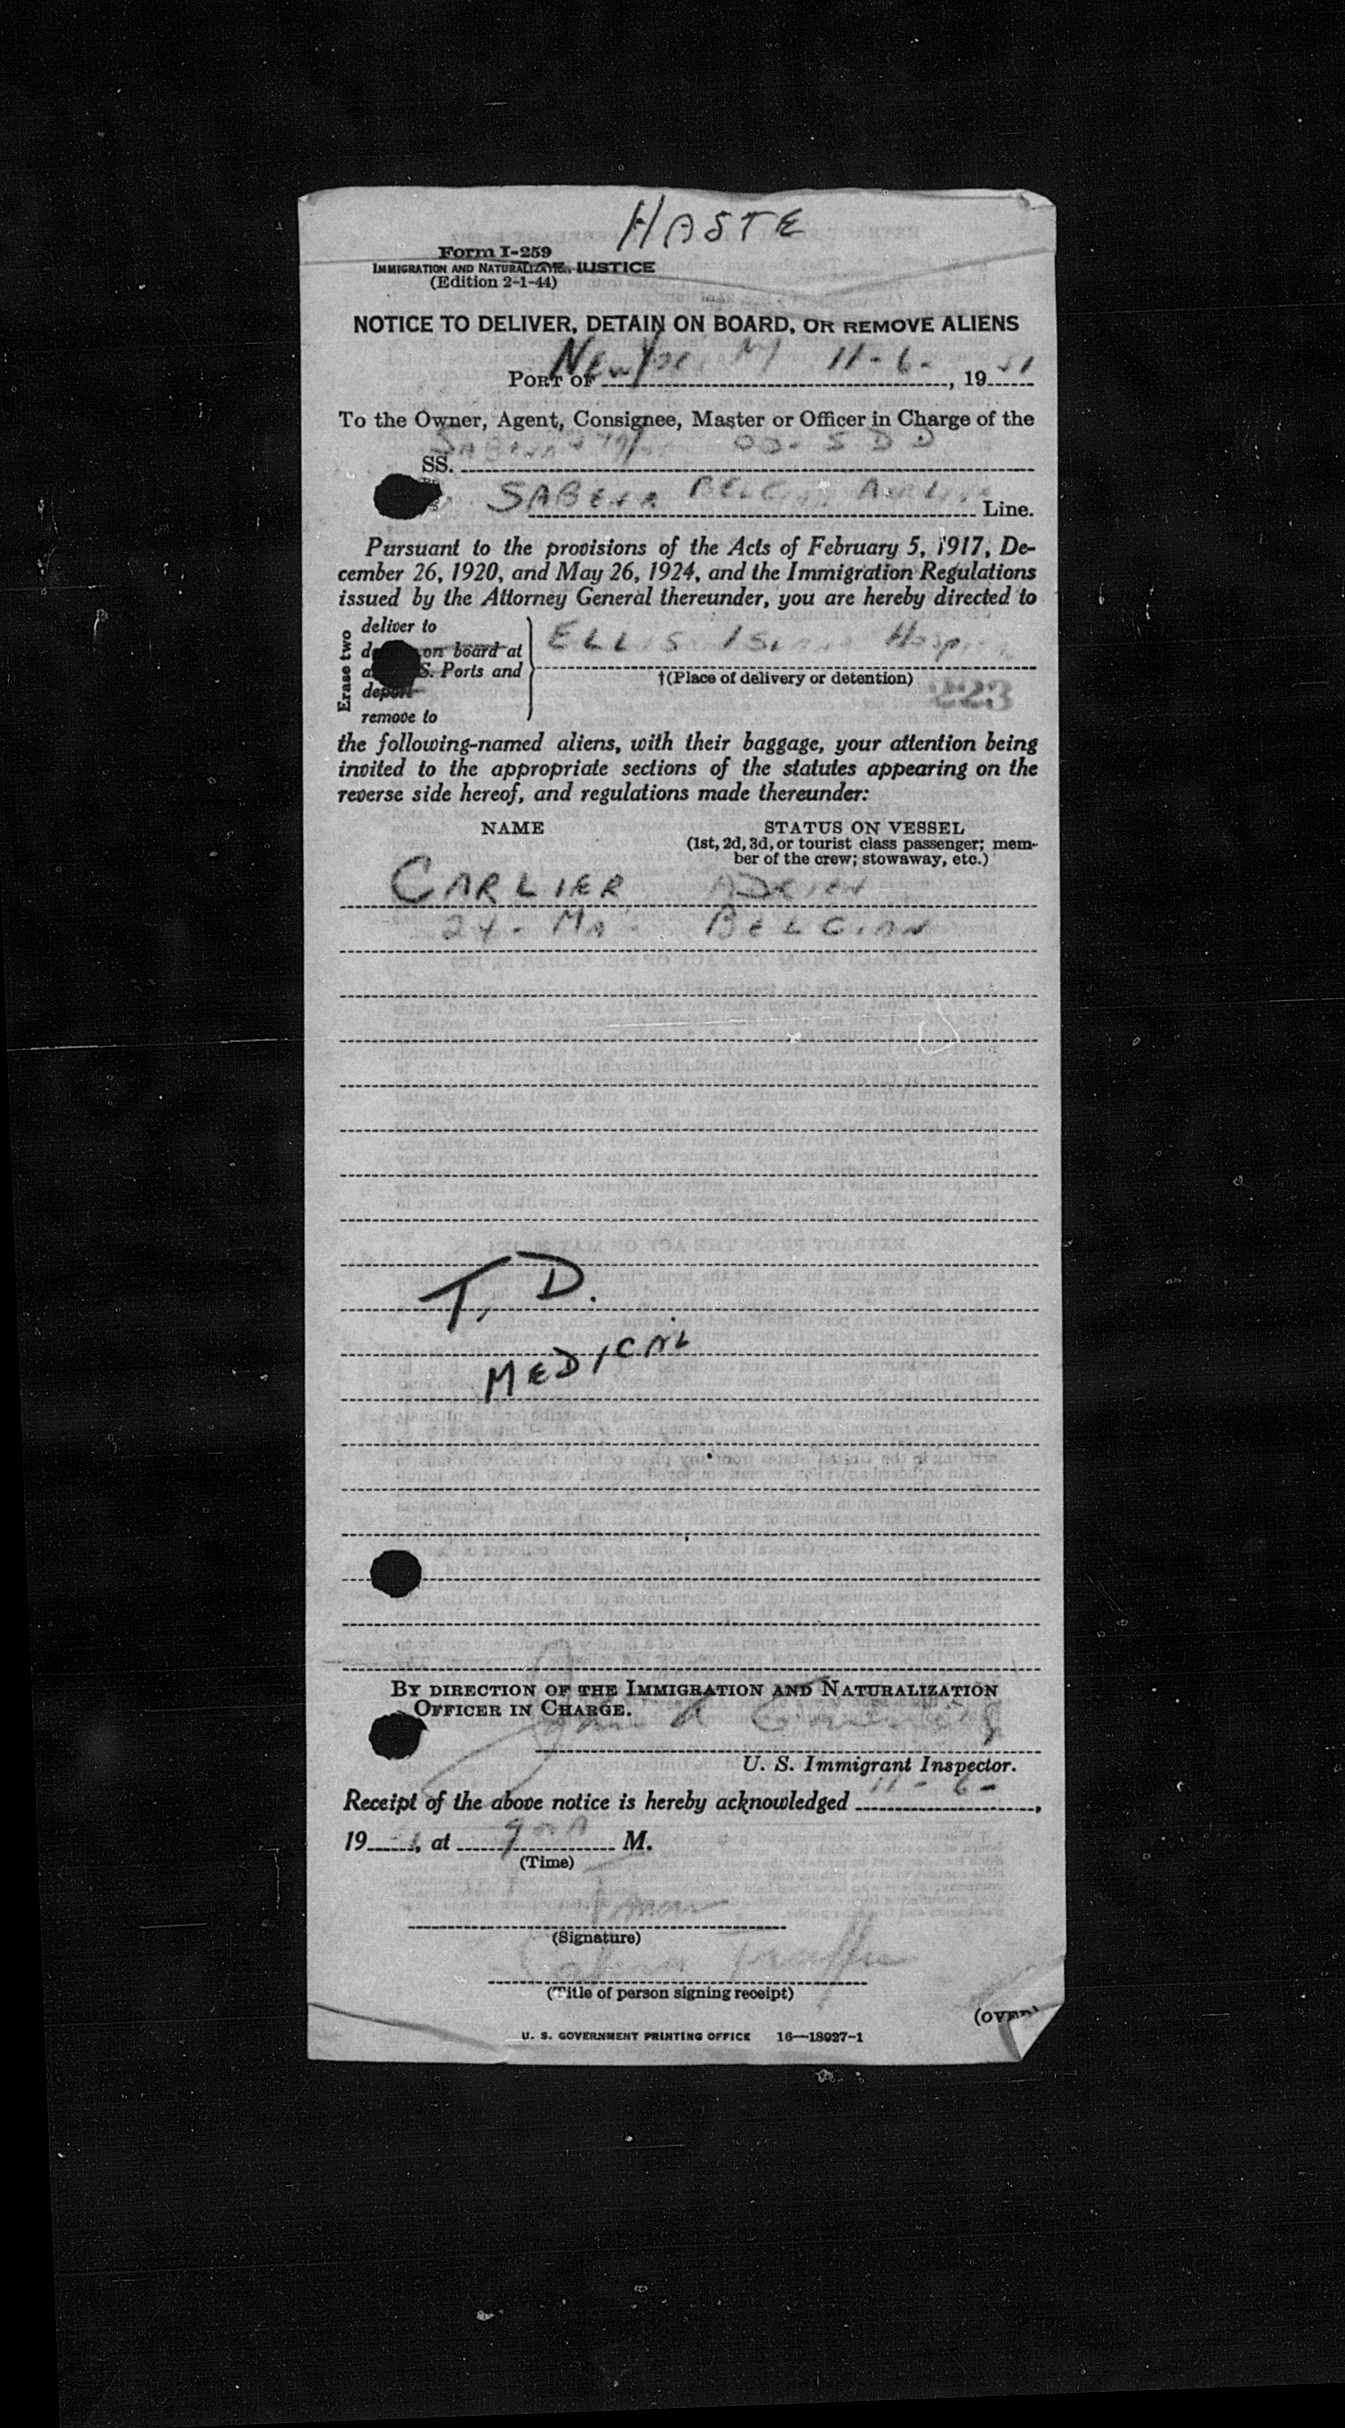 HASTE
Form I-259
IMMIGRATION AND JUSTICE
(Edition 2-1-44)
NOTICE TO DELIVER, DETAIN ON BOARD, OR REMOVE ALIENS
PORT OF New 11-6-, 19 51
To the Owner, Agent, Consignee, Master or Officer in Charge of the
SS. SABENA
SABENA BELGIAN AIRLINE Line.
Pursuant to the provisions of the Acts of February 5, 1917, De-
cember 26, 1920, and May 26, 1924, and the Immigration Regulations
issued by the Attorney General thereunder, you are hereby directed to
Erase two
deliver to
on board at
S. Ports and
deport
remove to
ELLIS ISLAND Hospital
†(Place of delivery or detention)
223
the following-named aliens, with their baggage, your attention being
invited to the appropriate sections of the statutes appearing on the
reverse side hereof, and regulations made thereunder:
NAME STATUS ON VESSEL
(1st, 2d, 3d, or tourist class passenger; mem-
ber of the crew; stowaway, etc.)
CARLIER ADRIEN
24 - MA - BELGIAN
T. D.
MEDICAL
BY DIRECTION OF THE IMMIGRATION AND NATURALIZATION
OFFICER IN CHARGE.
U. S. Immigrant Inspector.
Receipt of the above notice is hereby acknowledged 11-6-,
19, at M.
(Time)
(Signature)
Sabena Traffic
(Title of person signing receipt)
(OVER)
U. S. GOVERNMENT PRINTING OFFICE 16—18027-1